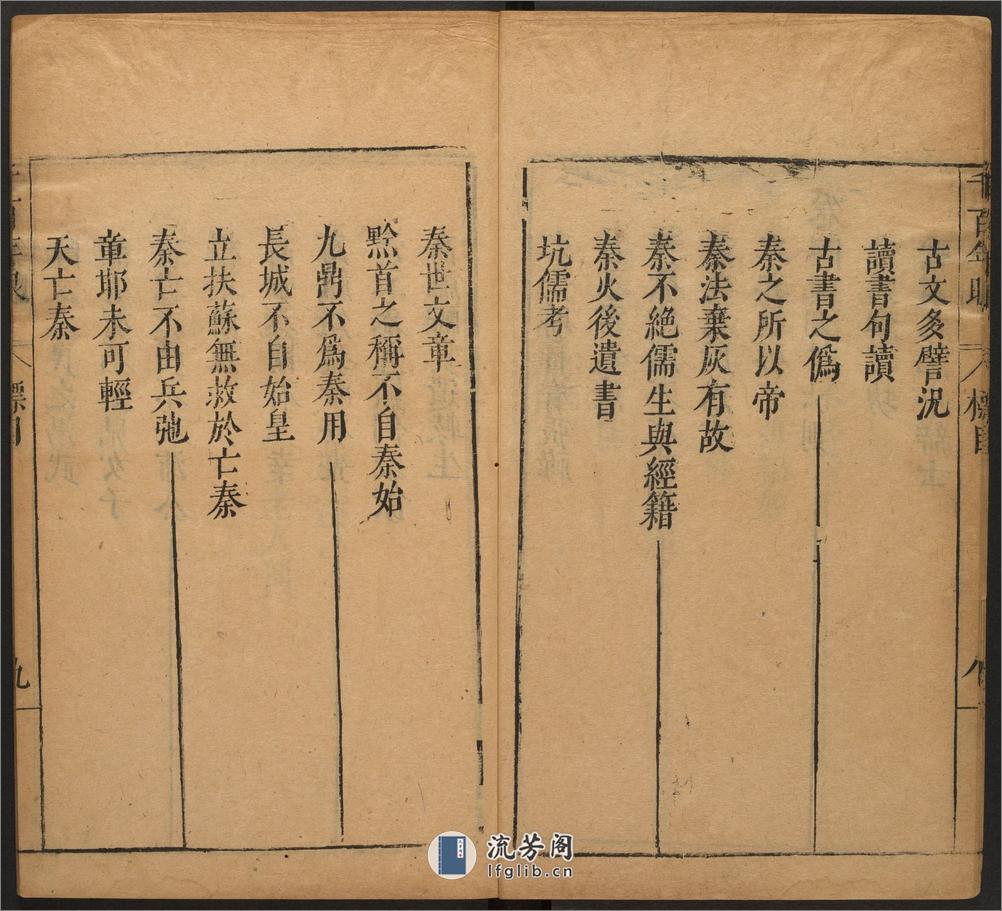 古文多譬況
讀書句讀
古書之僞
秦之所以帝
秦法棄灰有故
秦不絶儒生與經籍
秦火後遺書
坑儒考
秦世文章
黥首之稱不自秦始
九鼎不爲秦用
長城不自始皇
立扶蘇無救於亡秦
秦亡不由兵弛
章邯未可輕
天亡秦
標目
九
流芳阁
lfglib.cn